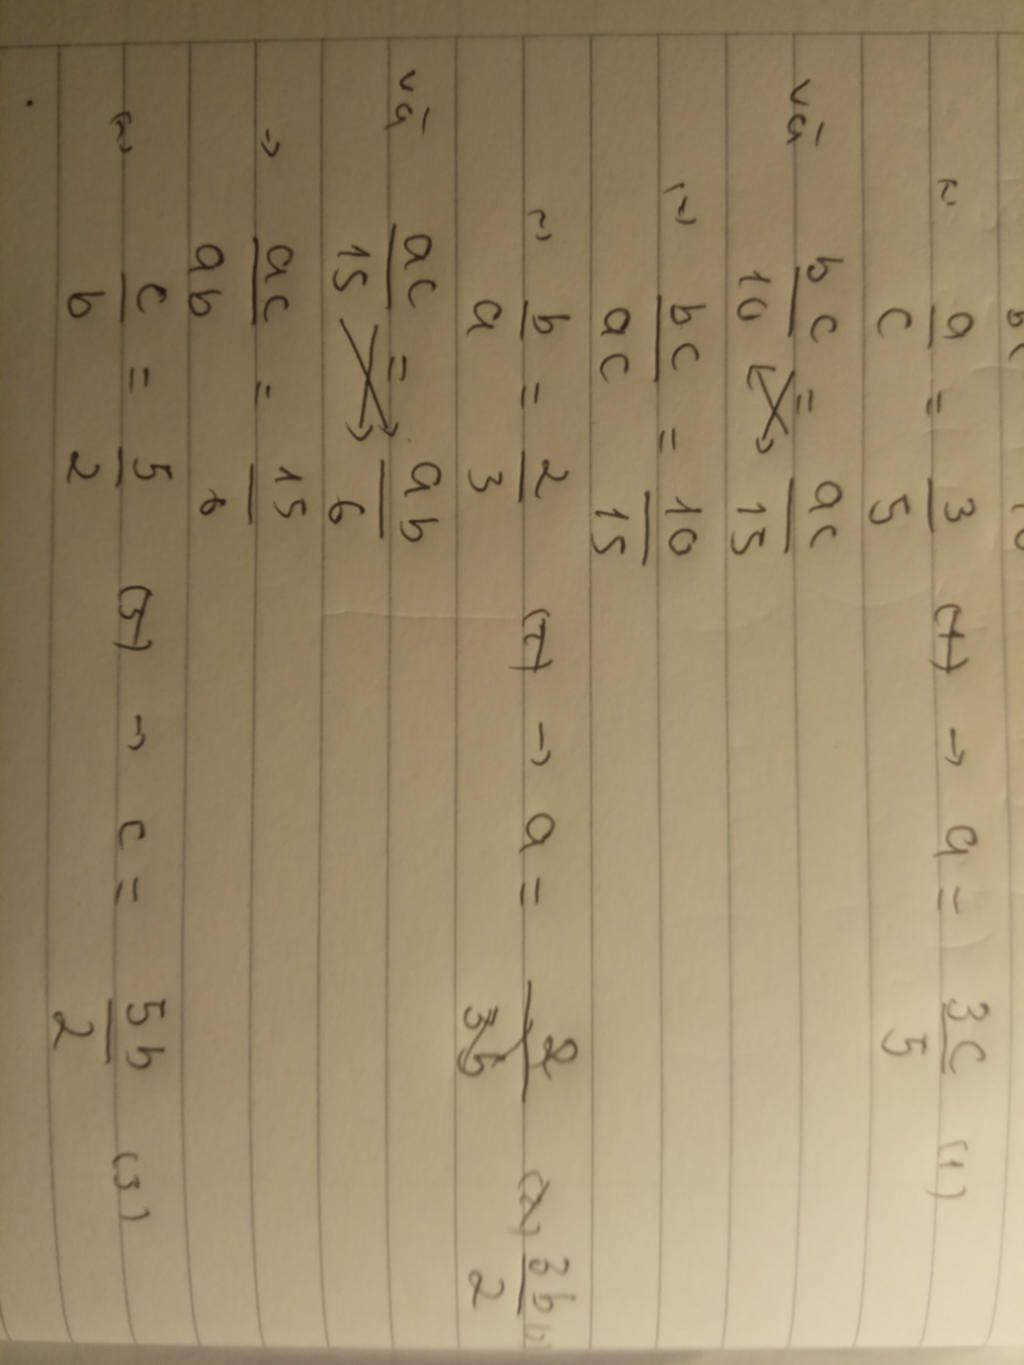 bc 10
~ a/c = 3/5 (1) → a = 3c/5 (1)
và bc/10 = ac/15
~ bc/ac = 10/15
~ b/a = 2/3 (2) → a = 3b/2
và ac/15 = ab/6
→ ac/ab = 15/6
~ c/b = 5/2 (3) → c = 5b/2 (3)